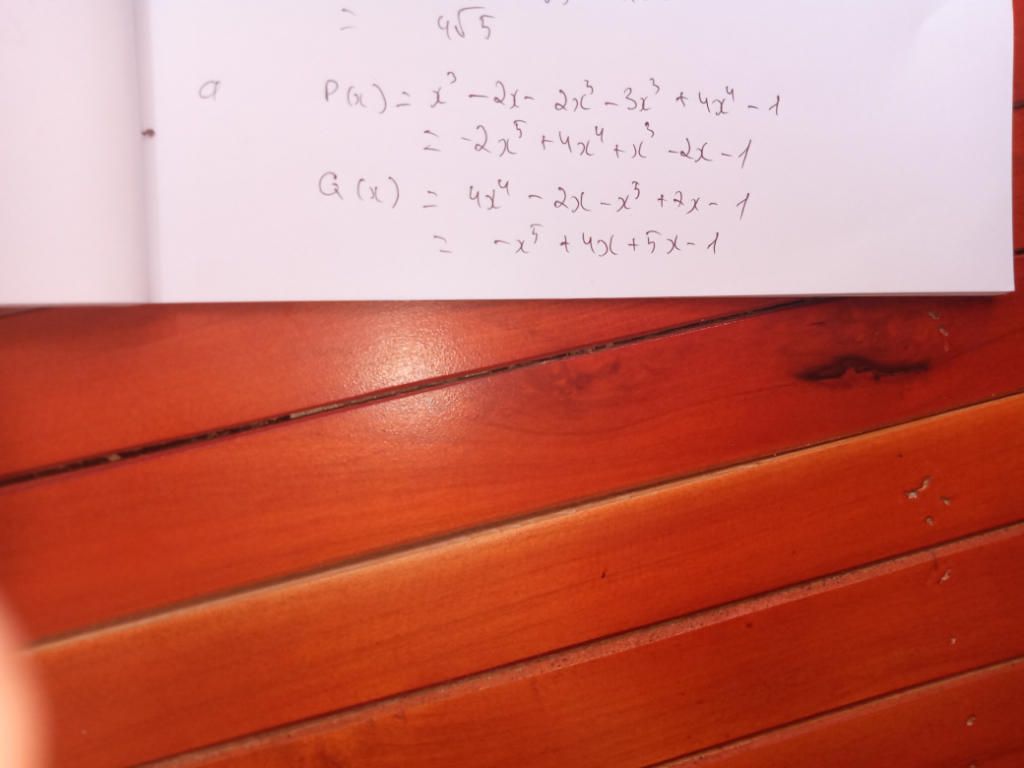 = 4√5
a P(x) = x³ - 2x - 2x³ - 3x³ + 4x⁴ - 1
= -2x⁵ + 4x⁴ + x³ - 2x - 1
Q(x) = 4x⁴ - 2x - x³ + 2x - 1
= -x⁵ + 4x + 5x - 1